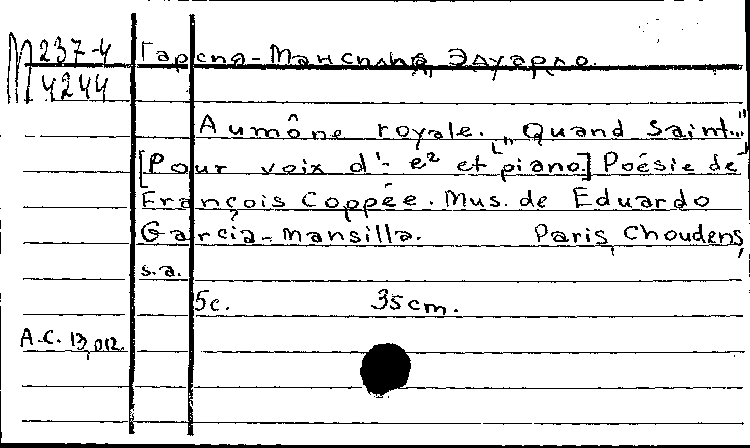 М 237-4
4244
Гарсиа-Мансилла, Эдуардо.
Aumône royale. ["Quand Saint..."]
[Pour voix d'- e² et piano.] Poésie de
François Coppée. Mus. de Eduardo
Garcia-Mansilla. Paris, Choudens,
s.a.
5c. 35cm.
A.C. 13,012.